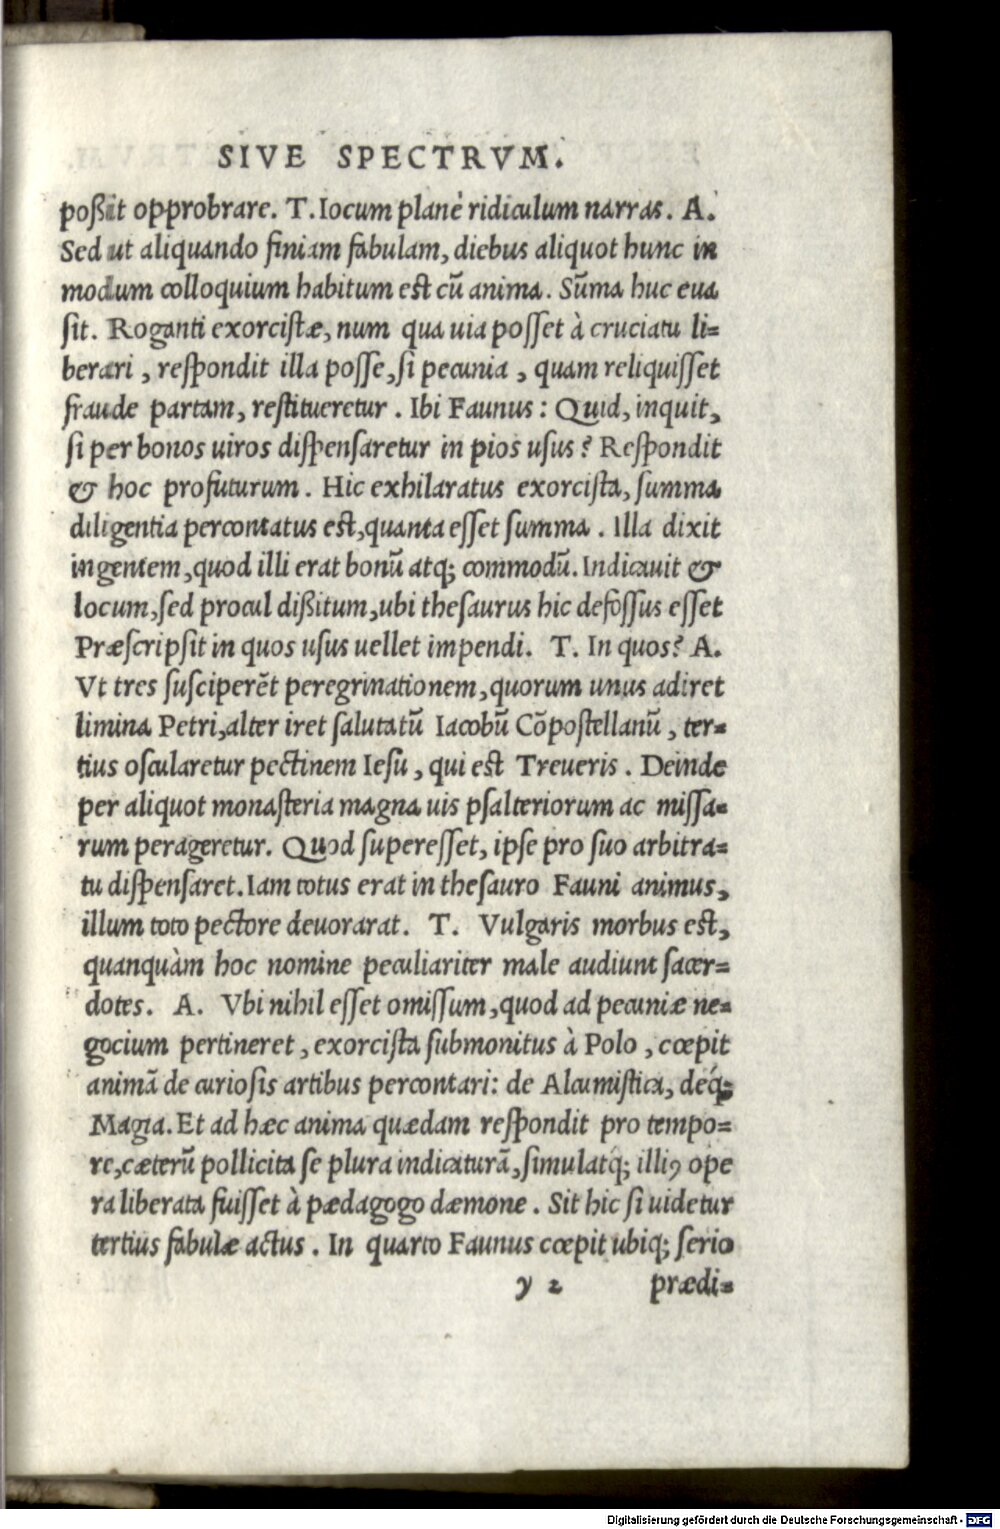 SIVE SPECTRVM.
poßit opprobrare. T. Iocum planè ridiculum narras. A.
Sed ut aliquando finiam fabulam, diebus aliquot hunc in
modum colloquium habitum est cū anima. Sūma huc eua
sit. Roganti exorcistæ, num qua uia posset à cruciatu li=
berari, respondit illa posse, si pecunia, quam reliquisset
fraude partam, restitueretur. Ibi Faunus: Quid, inquit,
si per bonos uiros dispensaretur in pios usus? Respondit
& hoc profuturum. Hic exhilaratus exorcista, summa
diligentia percontatus est, quanta esset summa. Illa dixit
ingentem, quod illi erat bonū atq; commodū. Indicauit &
locum, sed procul dißitum, ubi thesaurus hic defossus esset
Præscripsit in quos usus uellet impendi. T. In quos? A.
Vt tres susciperēt peregrinationem, quorum unus adiret
limina Petri, alter iret salutatū Iacobū Cōpostellanū, ter=
tius oscularetur pectinem Iesu, qui est Treueris. Deinde
per aliquot monasteria magna uis psalteriorum ac missa=
rum perageretur. Quod superesset, ipse pro suo arbitra=
tu dispensaret. Iam totus erat in thesauro Fauni animus,
illum toto pectore deuorarat. T. Vulgaris morbus est,
quanquàm hoc nomine peculiariter male audiunt sacer=
dotes. A. Vbi nihil esset omissum, quod ad pecuniæ ne=
gocium pertineret, exorcista submonitus à Polo, cœpit
animā de curiosis artibus percontari: de Alcumistica, deq́;
Magia. Et ad hæc anima quædam respondit pro tempo=
re, cæterū pollicita se plura indicaturā, simulatq́; illiꝰ ope
ra liberata fuisset à pædagogo dæmone. Sit hic si uidetur
tertius fabulæ actus. In quarto Faunus cœpit ubiq; serio
y 2 prædi=
Digitalisierung gefördert durch die Deutsche Forschungsgemeinschaft - DFG